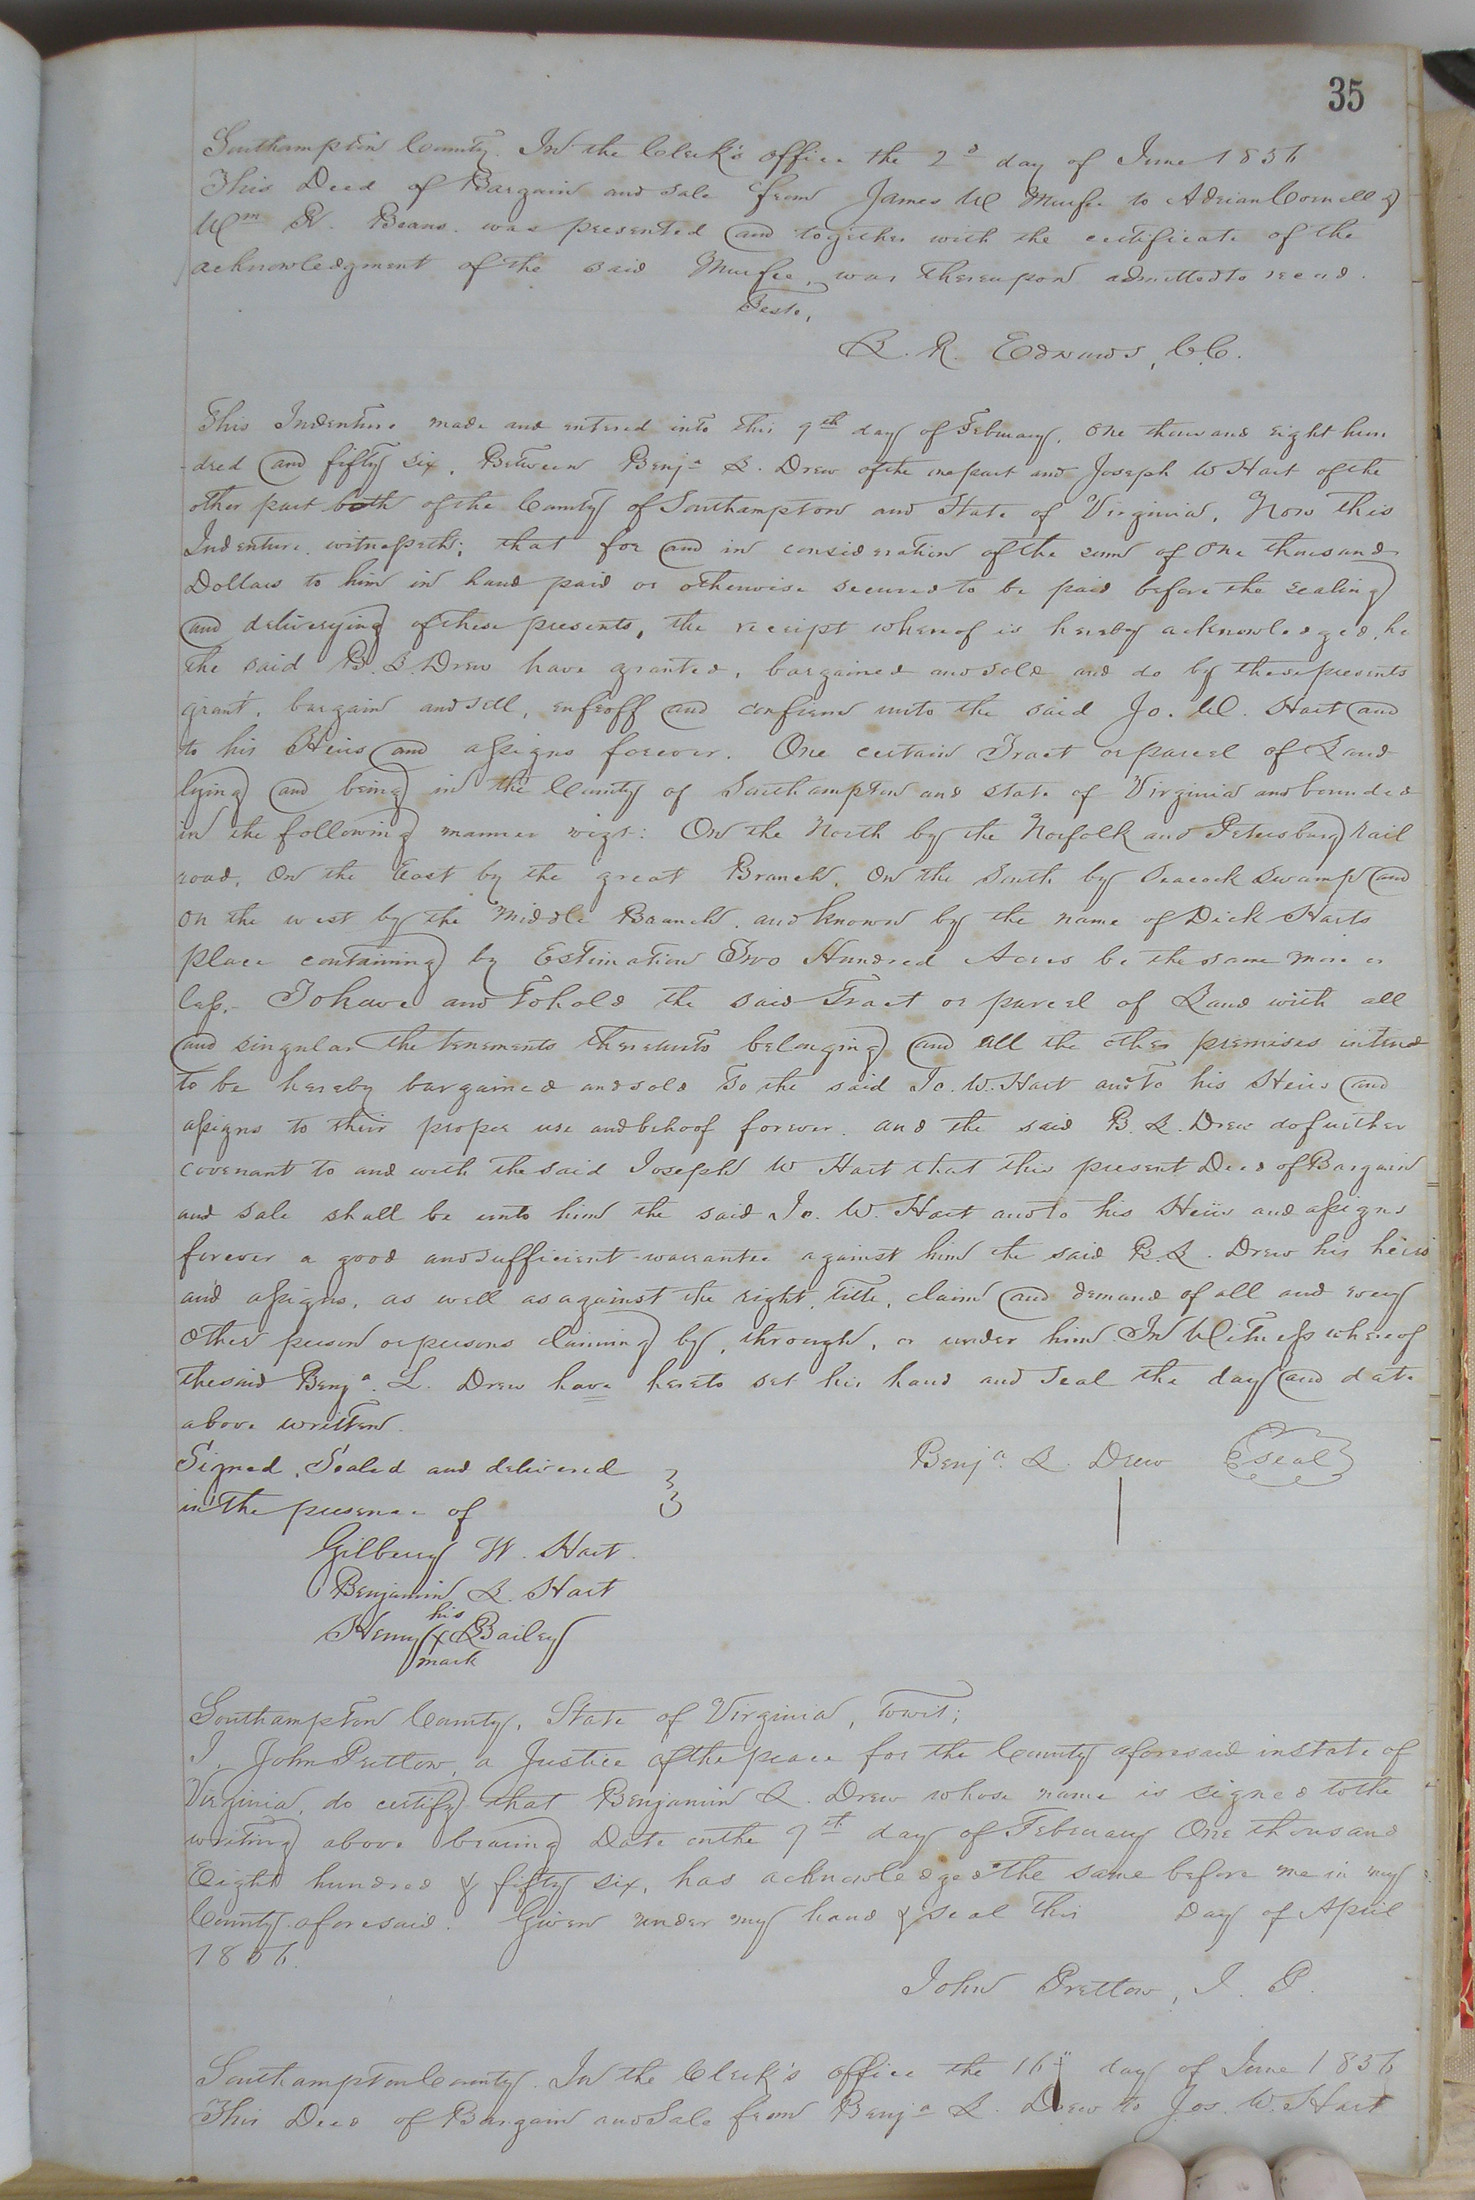 35
Southampton County. In the Clerk's office the 2d day of June 1856
This Deed of Bargain and sale from James W Murfee to Adrian Cornell &
Wm R. Beans. was presented and together with the certificate of the
acknowledgment of the said Murfee, was thereupon admitted to record.
Teste,
L. R. Edwards, C.C.
This Indenture made and entered into this 9th day of February, One thousand eight hun
dred and fifty six, Between Benja L. Drew of the one part and Joseph W Hart of the
other part both of the County of Southampton and State of Virginia, Now this
Indenture witnesseth; that for and in consideration of the sum of One thousand
Dollars to him in hand paid or otherwise secured to be paid before the sealing
and deliverying of these presents, the receipt whereof is hereby acknowledged, he
the said B. L. Drew have granted, bargained and sold and do by these presents
grant, bargain and sell, enfeoff and confirm unto the said Jo. W. Hart and
to his Heirs and assigns forever. One certain Tract or parcel of Land
lying and being in the County of Southampton and state of Virginia and bounded
in the following manner vizt: On the North by the Norfolk and Petersburg rail
road, On the East by the great Branch, On the South by Seacock Swamp and
on the west by the Middle Branch. and known by the name of Dick Harts
place containing by Estimation Two Hundred Acres be the same more or
less. To have and To hold the said Tract or parcel of Land with all
and singular the tenements thereunto belonging and all the other premises intend
to be hereby bargained and sold To the said Jo. W. Hart and To his Heirs and
assigns to their proper use and behoof forever. and the said B. L. Drew do further
covenant to and with the said Joseph W Hart that this present Deed of Bargain
and sale shall be unto him the said Jo. W. Hart and to his Heirs and assigns
forever a good and sufficient warrantee against him the said B. L. Drew his heirs
and assigns, as well as against the right, title, claim and demand of all and every
other person or persons claiming by, through, or under him In Witness whereof
the said Benja. L. Drew have hereto set his hand and seal the day and date
above written.
Signed, Sealed and delivered
Benja. L. Drew seal
in the presence of
Gilberry W. Hart.
Benjamin L. Hart
his
Henry X Bailey
mark
Southampton County, State of Virginia, towit;
I, John Pretlow, a Justice of the peace for the County aforesaid in state of
Virginia, do certify that Benjamin L. Drew whose name is signed to the
writing above bearing Date on the 9th day of February One thousand
Eight hundred & fifty six, has acknowledged the same before me in my
County aforesaid. Given under my hand & seal this day of April
1856.
John Pretlow, J. P.
Southampton County. In the Clerk's office the 16th day of June 1856
This Deed of Bargain and Sale from Benja L. Drew to Jos. W. Hart